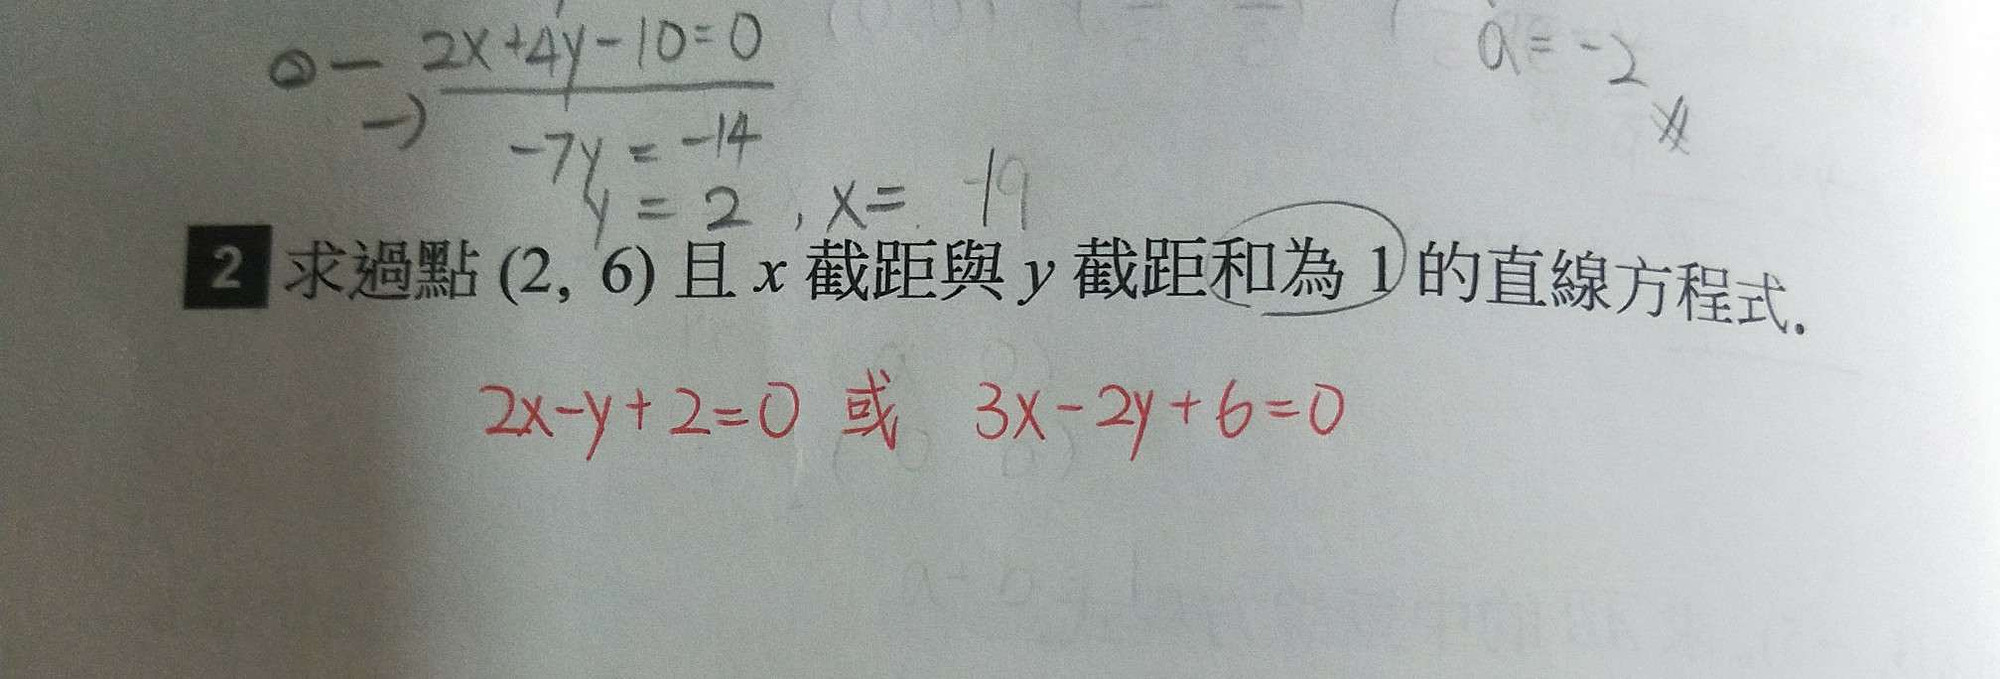 ② - 2x+4y-10=0
a=-2
-) -7y = -14
y = 2 , x= -19
2 求過點 (2, 6) 且 x 截距與 y 截距和為 1 的直線方程式.
2x-y+2=0 或 3x-2y+6=0